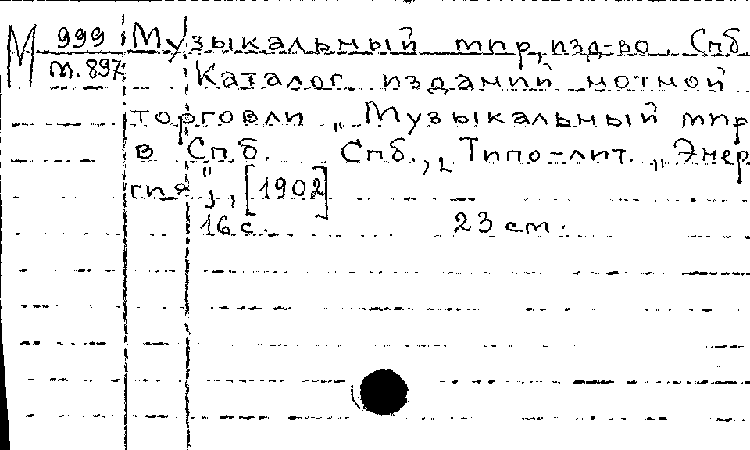 М 999 Музыкальный мир, изд-во. Спб.
т. 897 Каталог изданий нотной
торговли „Музыкальный мир
в Спб. Спб., „Типо-лит. „Энер
гия", [1902]
16 с. 23 см.